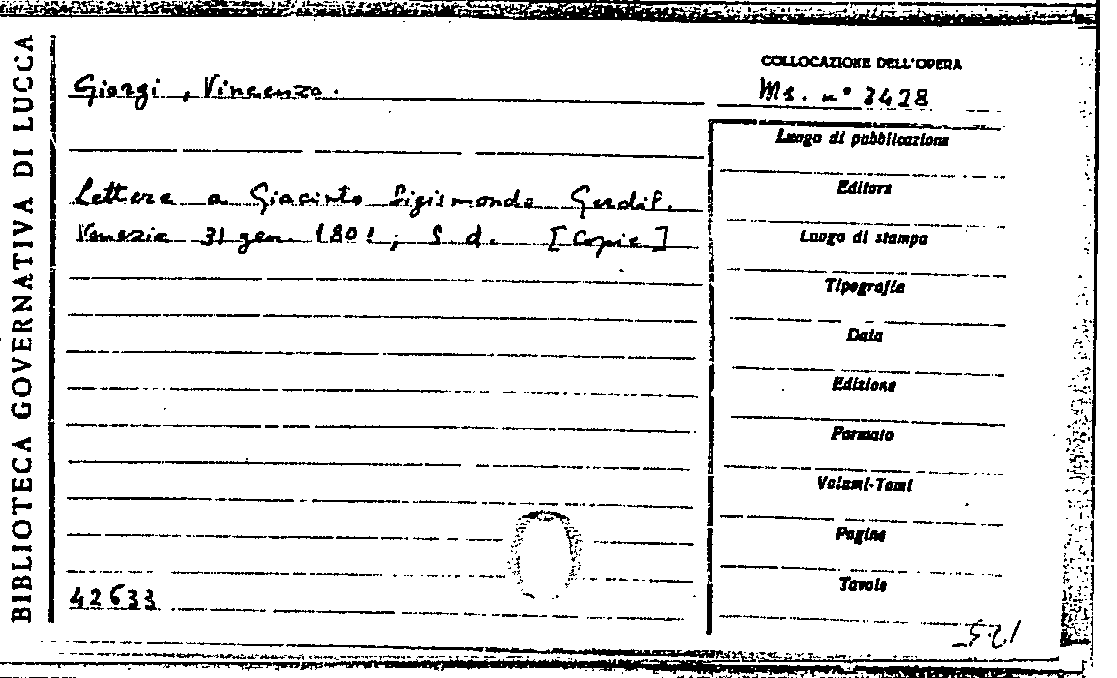 BIBLIOTECA GOVERNATIVA DI LUCCA
Giorgi, Vincenzo.
Lettere a Giacinto Sigismondo Gerdil.
Venezia 31 gen. 1801; s.d. [Copie]
42633
COLLOCAZIONE DELL'OPERA
Ms. n° 3428
Luogo di pubblicazione
Editore
Luogo di stampa
Tipografia
Data
Edizione
Formato
Volumi-Tomi
Pagine
Tavole